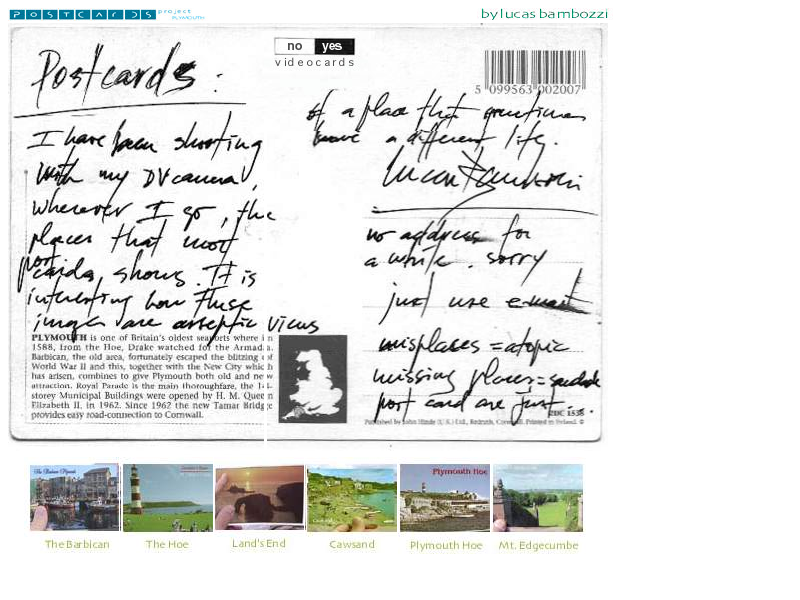 POSTCARDS project
PLYMOUTH
by lucas bambozzi
no yes
videocards
5 099563 002007
Postcards:
I have been shooting
with my DV camera,
wherever I go, the
places that most
post
cards, shows. It is
interesting how these
images are asseptic views
of a place that sometimes
have a different life.
no address for
a while. sorry
just use e-mail
misplaces = atopic
missing places = saudade
post card are just...
PLYMOUTH is one of Britain's oldest seaports where in
1588, from the Hoe, Drake watched for the Armada.
Barbican, the old area, fortunately escaped the blitzing of
World War II and this, together with the New City which
has arisen, combines to give Plymouth both old and new
attraction. Royal Parade is the main thoroughfare, the 14-
storey Municipal Buildings were opened by H. M. Queen
Elizabeth II, in 1962. Since 1962 the new Tamar Bridge
provides easy road-connection to Cornwall.
2DC 1538
Published by John Hinde (U.K.) Ltd., Redruth, Cornwall. Printed in Ireland. ©
The Barbican Plymouth
Plymouth Hoe
The Barbican
The Hoe
Land's End
Cawsand
Plymouth Hoe
Mt. Edgecumbe